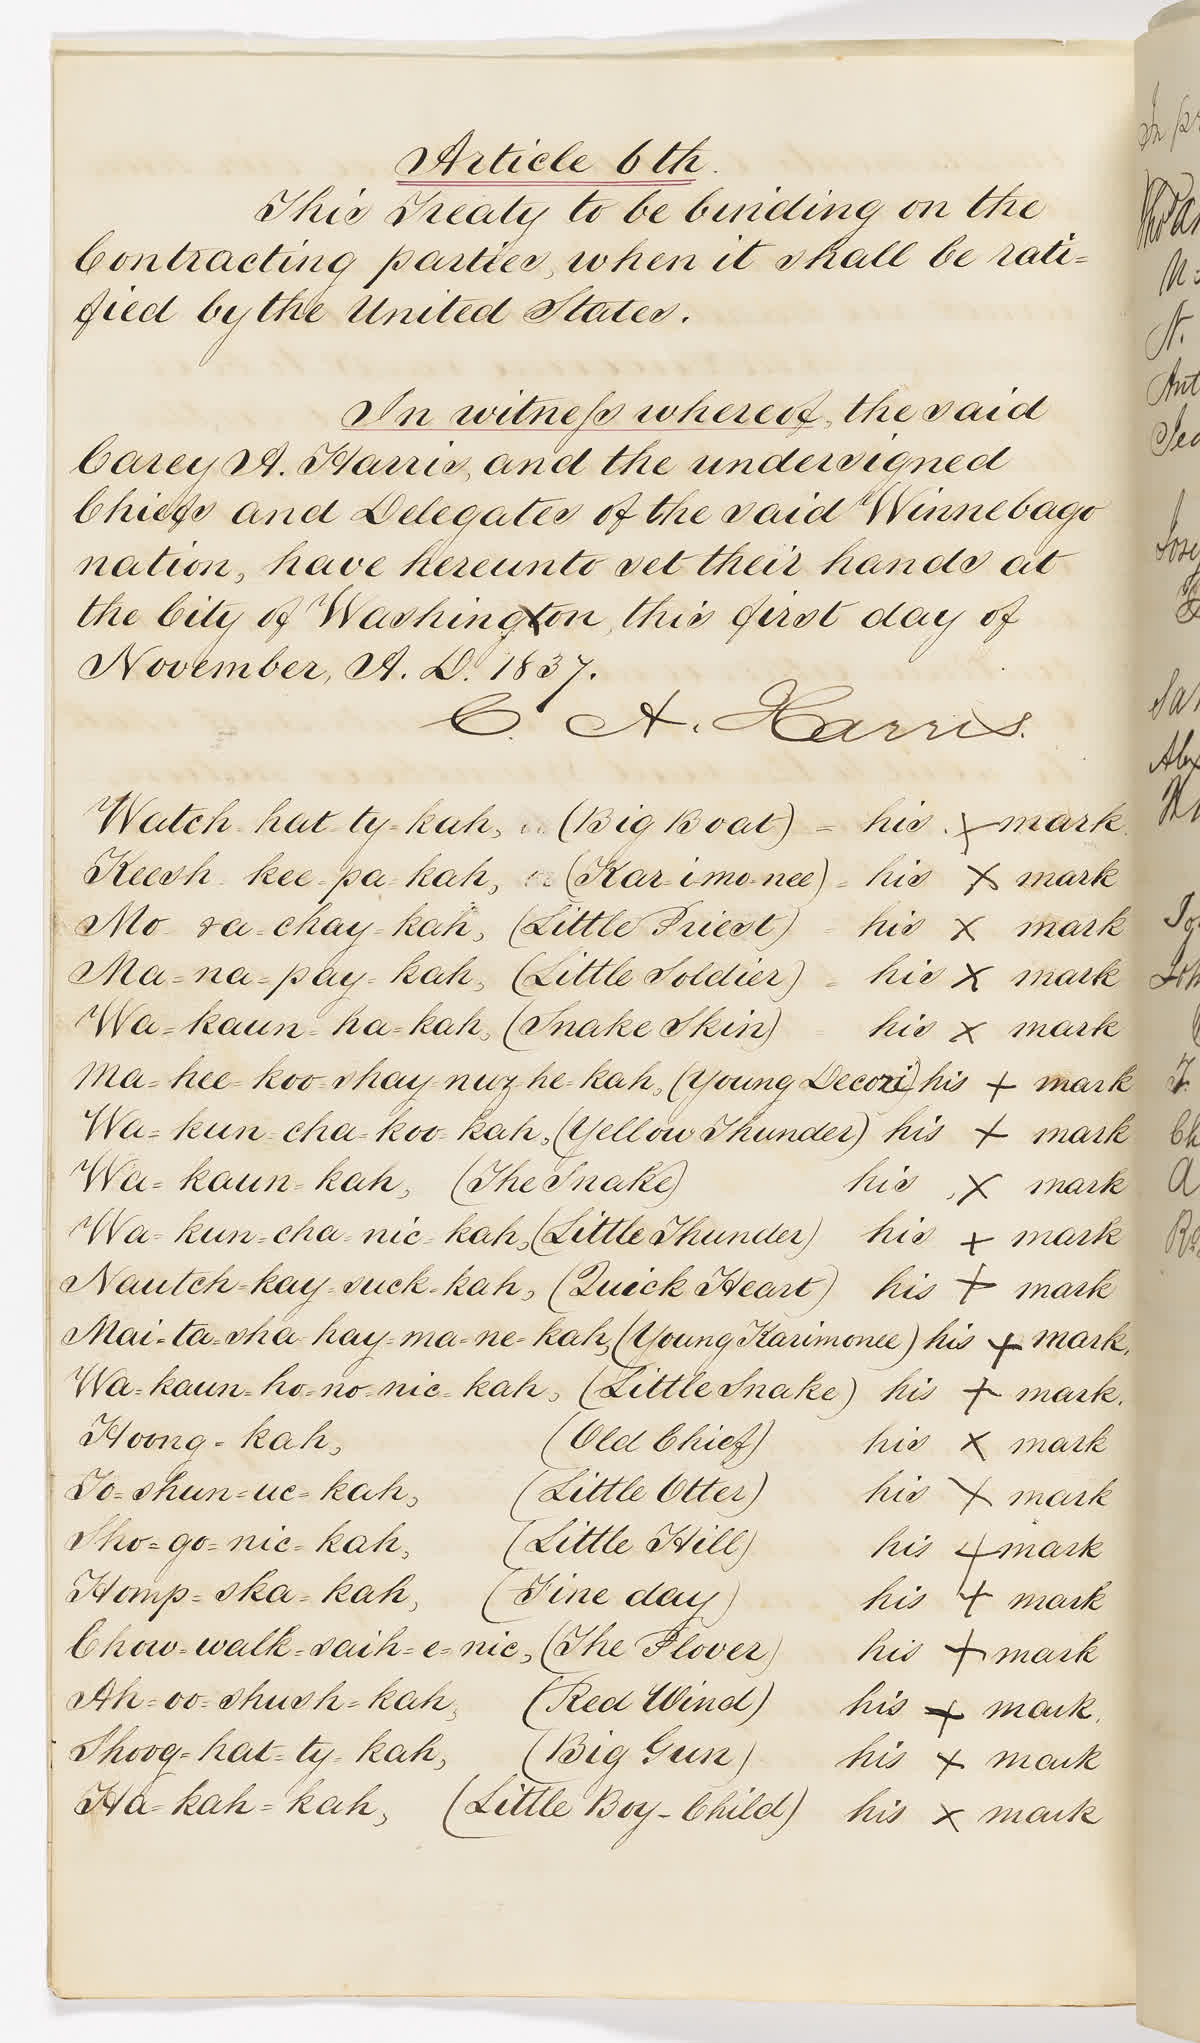 Article 6th.
This Treaty to be binding on the
Contracting parties, when it shall be rati=
fied by the United States.
In witness whereof, the said
Carey A. Harris, and the undersigned
Chiefs and Delegates of the said Winnebago
nation, have hereunto set their hands at
the City of Washington, this first day of
November, A. D. 1837.
C. A. Harris.
Watch-hat-ty-kah, (Big Boat) = his x mark.
Keesh-kee-pa-kah, or (Kar-i-mo-nee) = his x mark
Mo-ra-chay-kah, (Little Priest) = his x mark
Ma=na=pay-kah, (Little Soldier) = his x mark
Wa=kaun-ha-kah, (Snake Skin) his x mark
Ma=hee-koo-shay-nuz-he-kah, (Young Decori) his + mark
Wa=kun-cha-koo-kah, (Yellow Thunder) his + mark
Wa=kaun-kah, (The Snake) his x mark
Wa-kun-cha-nic-kah, (Little Thunder) his + mark
Nautch-kay-suck-kah, (Quick Heart) his + mark
Mai-ta-sha-hay-ma-ne-kah, (Young Karimonee) his + mark.
Wa-kaun-ho-no-nic-kah, (Little Snake) his + mark.
Hoong-kah, (Old Chief) his x mark
To=shun-uc-kah, (Little Otter) his x mark
Sho=go-nic-kah, (Little Hill) his + mark
Homp-ska-kah, (Fine day) his + mark
Chow-walk-saih-e-nic, (The Plover) his + mark
Ah-oo-shush-kah, (Red Wind) his + mark.
Shoog-hat-ty-kah, (Big Gun) his x mark
Ha-kah-kah, (Little Boy-Child) his x mark